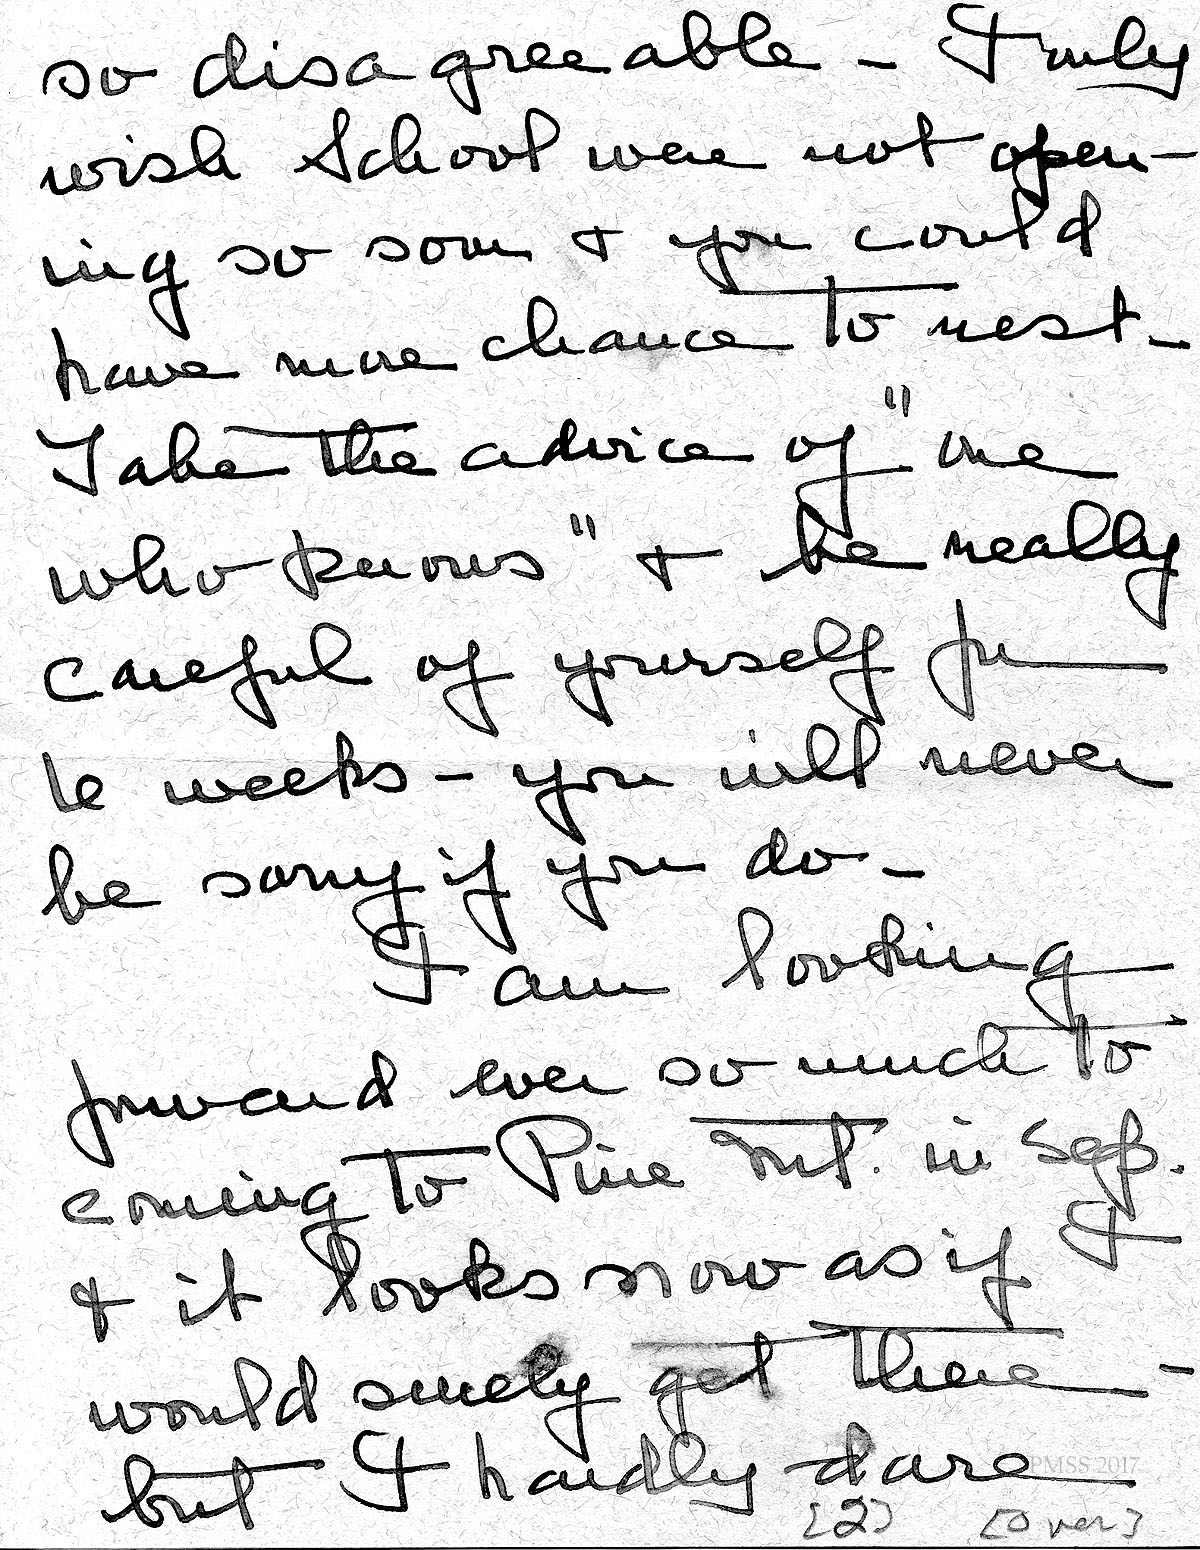 so disagreeable – I only
wish School were not open-
ing so soon & you could
have more chance to rest –
Take the advice of "one
who knows" & be really
careful of yourself for
weeks – you will never
be sorry if you do –
I am looking
forward ever so much to
coming to Pine Mt. in Sep.
& it looks now as if I
would surely get there –
but I hardly dare
[2] [over]
PMSS 2017